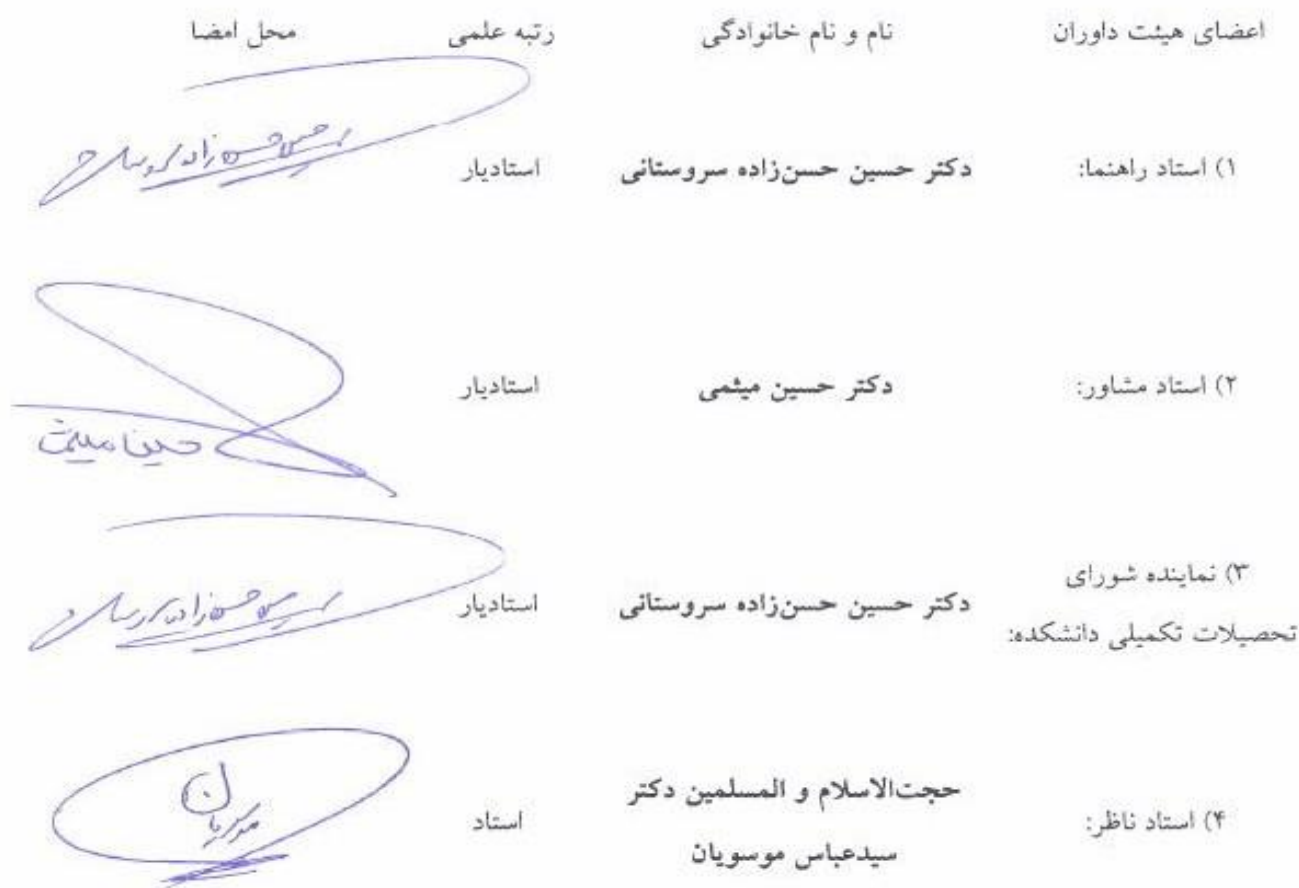 اعضای هیئت داوران نام و نام خانوادگی رتبه علمی محل امضا
۱) استاد راهنما: دکتر حسین حسن‌زاده سروستانی استادیار
حسین حسن‌زاده سروستانی
۲) استاد مشاور: دکتر حسین میثمی استادیار
حسین میثمی
۳) نماینده شورای
تحصیلات تکمیلی دانشکده: دکتر حسین حسن‌زاده سروستانی استادیار
حسین حسن‌زاده سروستانی
۴) استاد ناظر: حجت‌الاسلام و المسلمین دکتر استاد
سیدعباس موسویان
موسویان